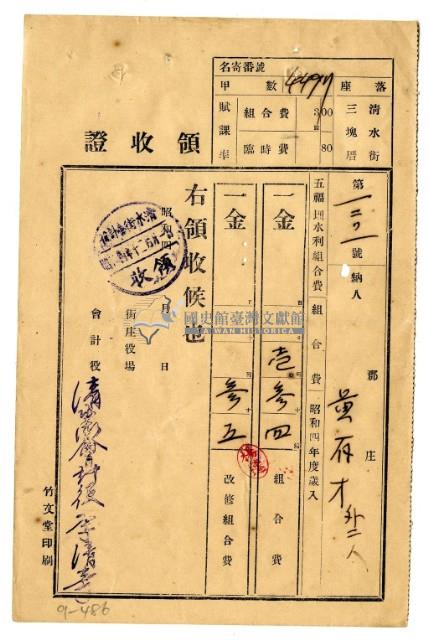 名寄番號
甲數 4497
座落 清水街 三塊厝
賦課率
組合費 3 00
臨時費 80
領收證
第一二〇一號納人
鄭庄
黃存才 外二人
五福圳水利組合費 組合費 昭和四年度歲入
一金 壱參四 組合費
一金 參五 改修組合費
右領收候也
昭和四 月 日
街庄役場
會計役
清水街會計役
領收
竹文堂印刷
國史館臺灣文獻館
TAIWAN HISTORICA
9-486